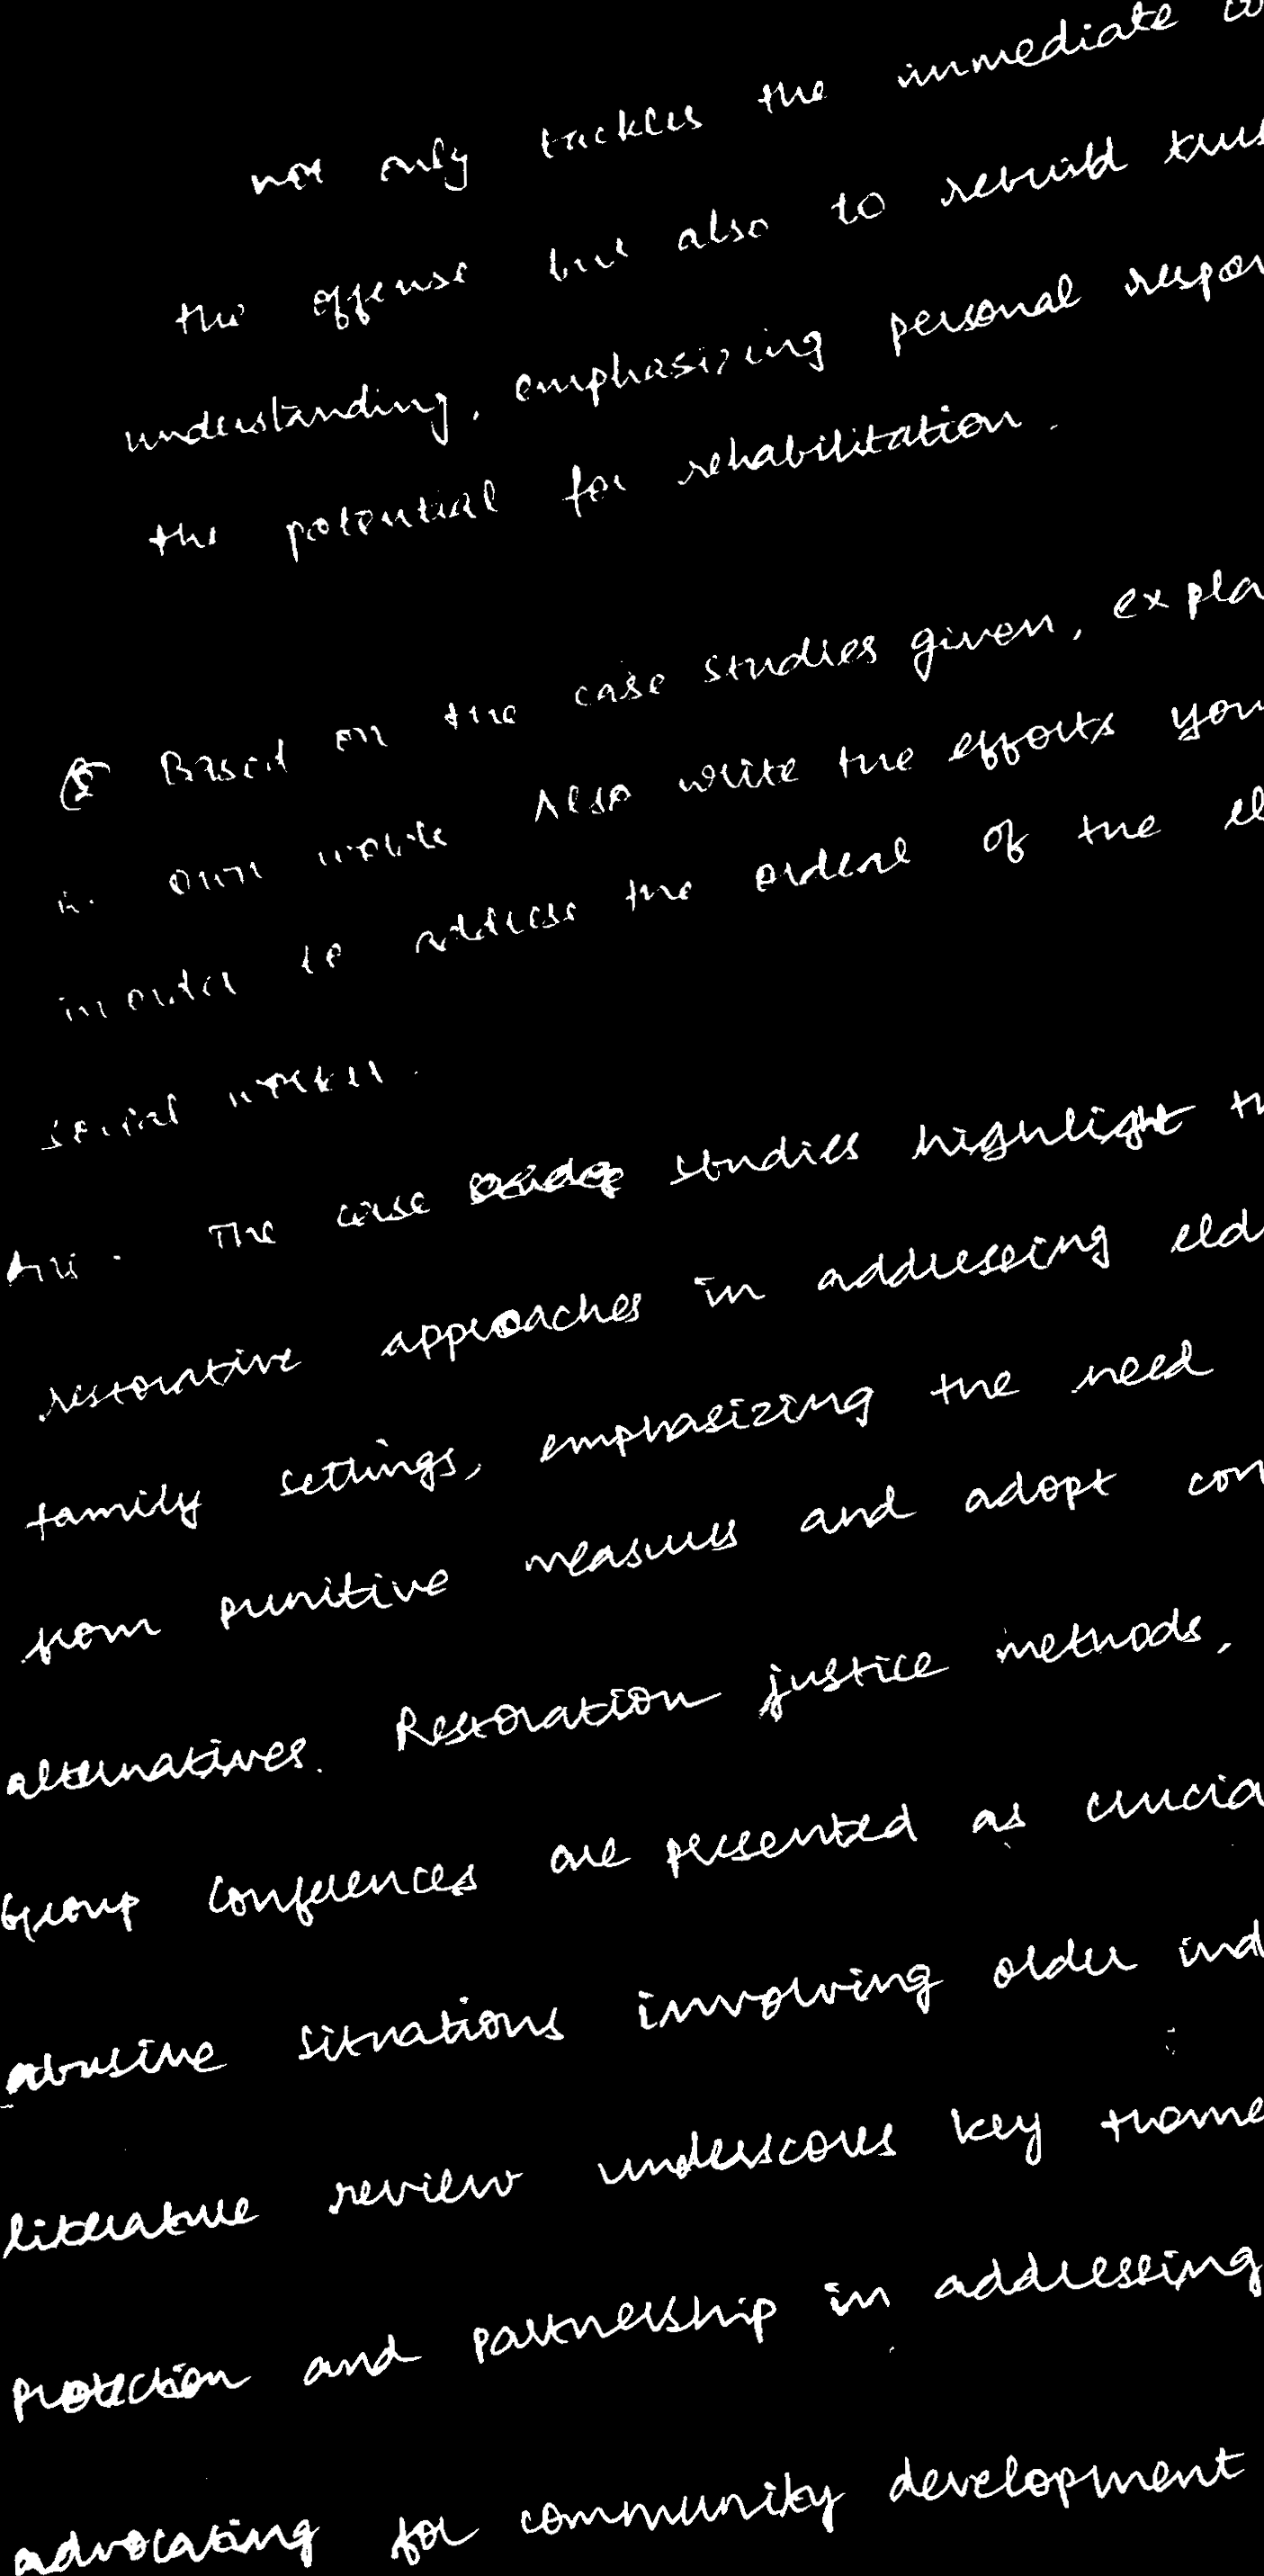 not only tackles the immediate co
the offense but also to rebuild trus
understanding, emphasizing personal respon
the potential for rehabilitation.
Q5 Based on the case studies given, expla
in own words Also write the efforts you
in order to address the ordeal of the el
social worker.
Ans. The case studies highlight th
restorative approaches in addressing eld
family settings, emphasizing the need
from punitive measures and adopt con
alternatives. Restoration justice methods,
Group Conferences are presented as crucia
abusive situations involving older ind
literature review underscores key theme
protection and partnership in addressing
advocating for community development